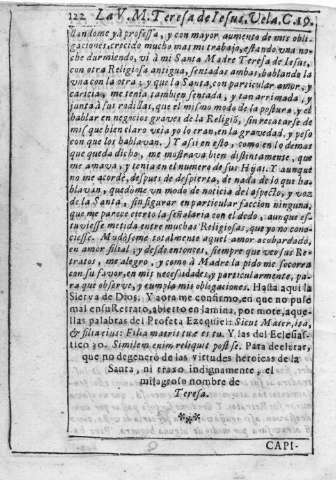 122 La V. M. Teresa de Iesus Vela. C. 19.
llandome yà professa, y con mayor aumento de mis obli-
gaciones, crecido mucho mas mi trabajo, estando vna no-
che durmiendo, vi à mi Santa Madre Teresa de Iesus,
con otra Religiosa antigua, sentadas ambas, hablando la
vna con la otra; y que la Santa, con particular amor, y
caricia, me tenia tambien sentada, y tan arrimada, y
junta à sus rodillas, que el mismo modo de la postura, y el
hablar en negocios graves de la Religiõ, sin recatarse de
mi, que bien claro veia yo lo eran, en la gravedad, y peso
con que los hablavan.) Y assi en esto, como en lo demas
que queda dicho, me mostrava bien distintamente, que
me amava, y tenia en el numero de sus Hijas. Y aunque
no me acordè, despues de despierta, de nada de lo que ha-
blavan, quedòme vn modo de noticia del aspecto, y voz
de la Santa, sin figurar en particular faccion ninguna,
que me parece cierto la señalaria con el dedo, aunque es-
tuviesse metida entre muchas Religiosas, que yo no cono-
ciesse. Mudòseme totalmente aquel amor acobardado,
en amor filial; y desde entonces, siempre que veo sus Re-
tratos, me alegro, y como à Madre la pido me socorra
con su favor, en mis necessidades, y particularmente, pa-
ra que observe, y cumpla mis obligaciones. Hasta aqui la
Sierva de Dios. Y aora me confirmo, en que no puse
mal en su Retrato, abierto en lamina, por mote, aque-
llas palabras del Profeta Ezequiel: Sicut Mater, ita,
& filia eius: Filia matris tuæ es tu. Y las del Eclesias-
tico 30. Similem enim reliquit post se. Para declarar,
que no degenerò de las virtudes heroicas de la
Santa, ni traxo indignamente, el
milagroso nombre de
Teresa.
CAPI-